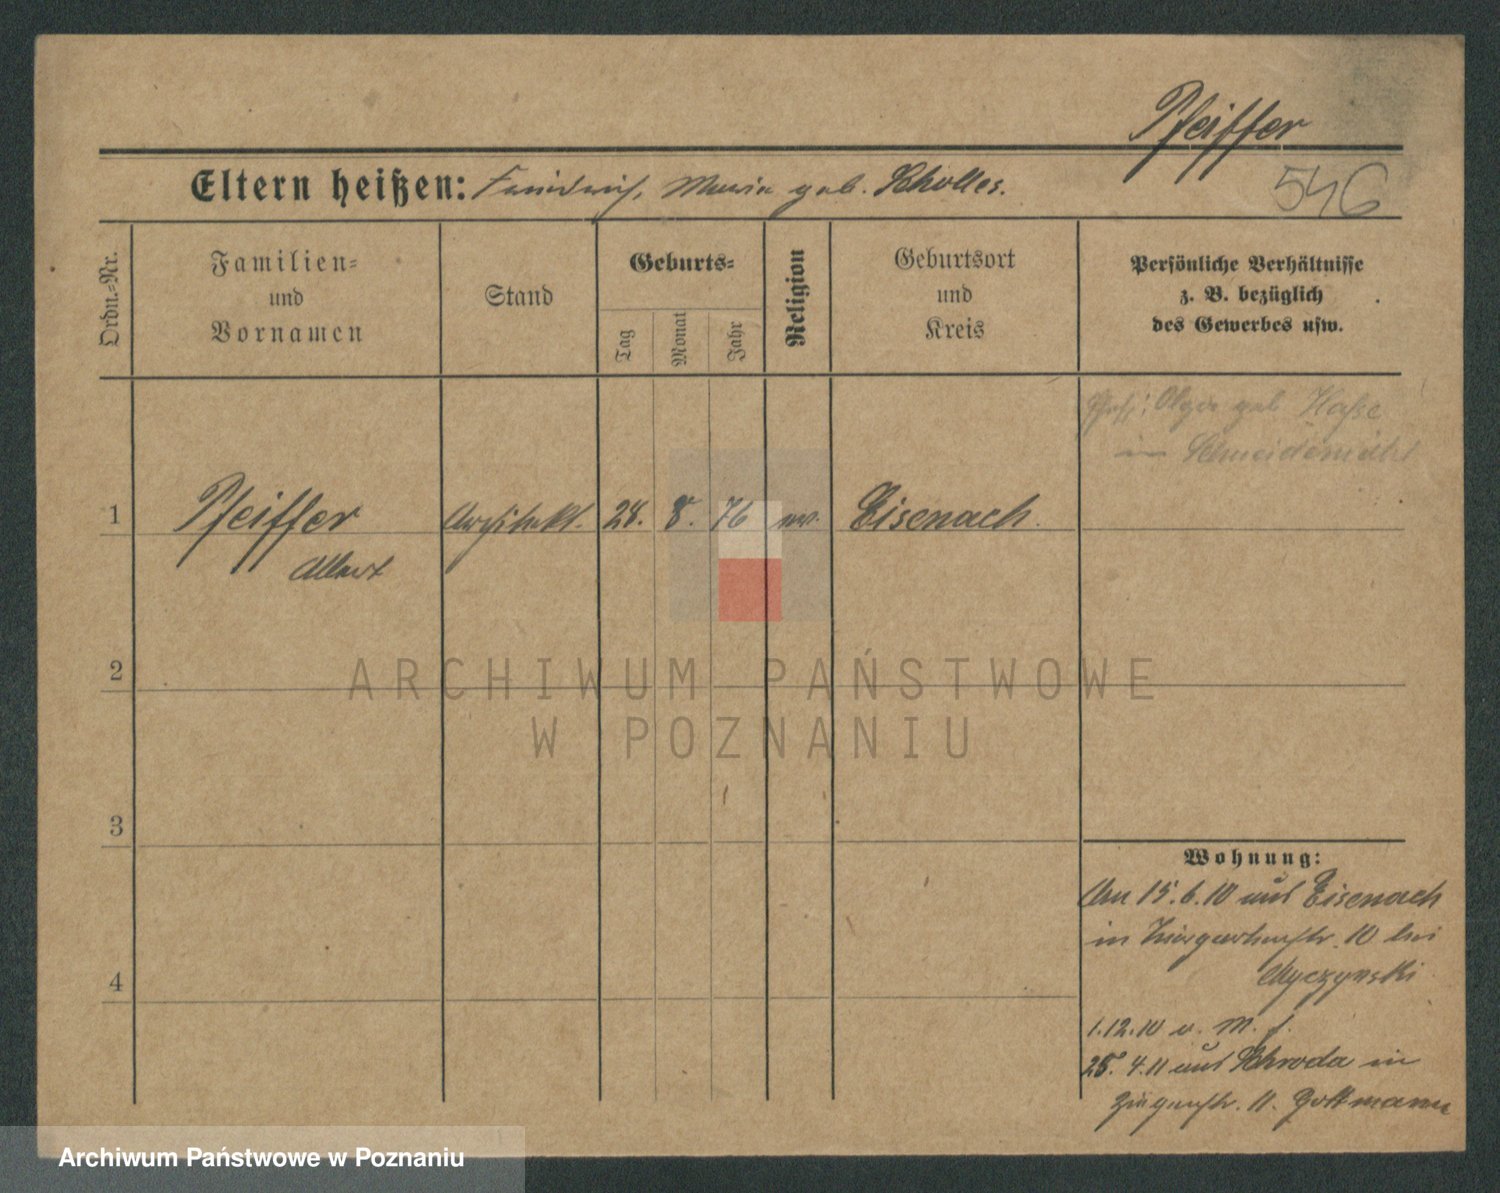 Pfeiffer
546
Eltern heißen: Friedrich, Maria geb. Scholles.
Ordn.=Nr.
Familien=
und
Vornamen
Stand
Geburts=
Tag
Monat
Jahr
Religion
Geburtsort
und
Kreis
Persönliche Verhältnisse
z. B. bezüglich
des Gewerbes usw.
Olga geb Haße
in Schneidemühl
1 Pfeiffer Architekt. 28. 8. 76 ev. Eisenach.
Albert
2
3
4
ARCHIWUM PAŃSTWOWE
W POZNANIU
Wohnung:
Am 15.6.10 aus Eisenach
in 10 bei
1.12.10 v. M.
25. 4.11 aus Schroda in
11. Gottmann
Archiwum Państwowe w Poznaniu